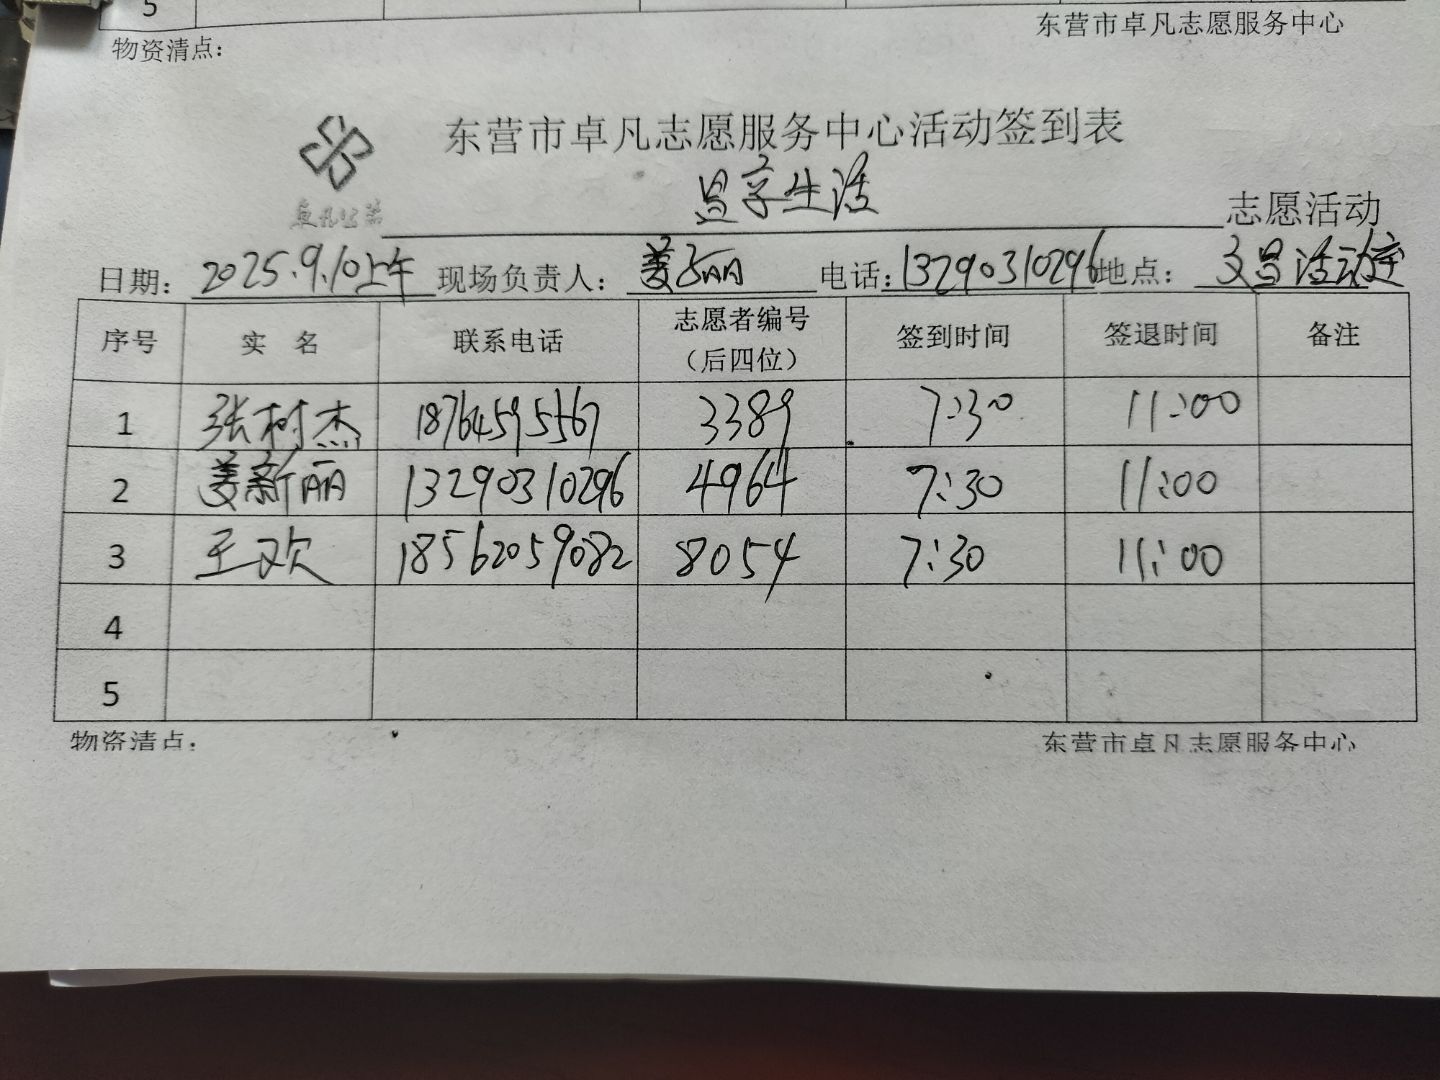 5
物资清点：
东营市卓凡志愿服务中心
东营市卓凡志愿服务中心活动签到表
生活
志愿活动
日期：2025.9.10上午 现场负责人：姜丽 电话：13290310296 地点：文昌活动室
序号 实 名 联系电话 志愿者编号（后四位） 签到时间 签退时间 备注
1 张树杰 18764595567 3389 7:30 11:00
2 姜新丽 13290310296 4964 7:30 11:00
3 王欢 18562059082 8054 7:30 11:00
4
5
物资清点：
东营市卓凡志愿服务中心